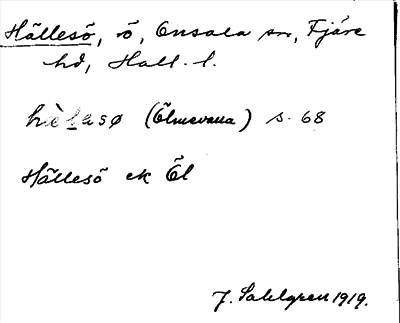 Hällesö, ö, Onsala sn, Fjäre
hd, Hall. l.
(Ölmevana) s. 68
Hällesö ek Öl
J. Sahlgren 1919.